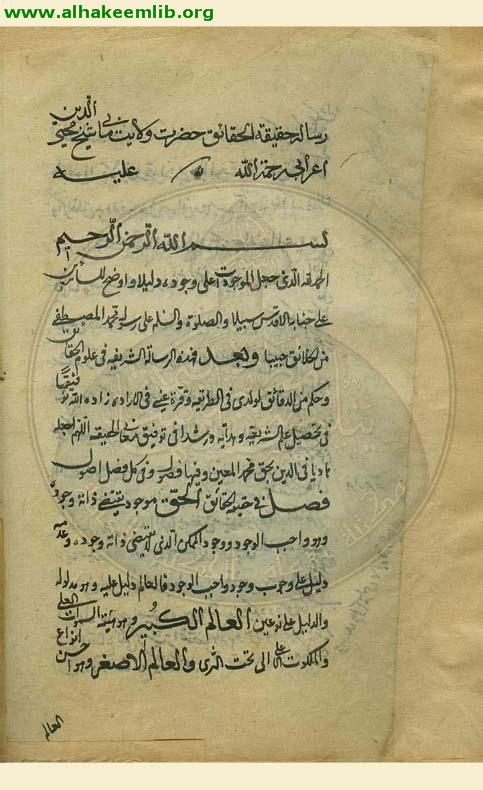 www.alhakeemlib.org
رساله حقيقة الحقائق حضرت ولايت مآبي شيخ محيي الدين
اعرابي رحمة الله عليه
بسم الله الرحمن الرحيم
الحمد لله الذي جعل الموجودات على وجوده دليلا واوضح للسائرين
على جنابه الاقدس سبيلا والصلوة والسلام على رسوله محمد المصطفى
من الخلائق حبيبا وبعد فهذه الرسالة الشريفة في علوم الحقائق
وحكم من الدقائق لولدي في الطريقة وقرة عيني في الارادة زاده الله توفيقا
في تحصيل علم الشريعة وهداية ورشدا في توفيق معاني الحقيقة اللهم اجعله
هاديا في الدين بحق محمد المعين وفيها فصول وفي كل فصل اصول
فصل في حقيقة الحقائق الحق موجود يقتضي ذاته وجوده
وهو واجب الوجود ووجود الممكن الذي لا يقتضي ذاته وجوده وعدمه
دليل على وجوب وجود واجب الوجود فالعالم دليل عليه وهو مدلوله
والدليل على نوعين العالم الكبير وهو هيئة السموات العلى
والملكوت الاعلى الى تحت الثرى والعالم الاصغر وهو احسن انواع
العالم